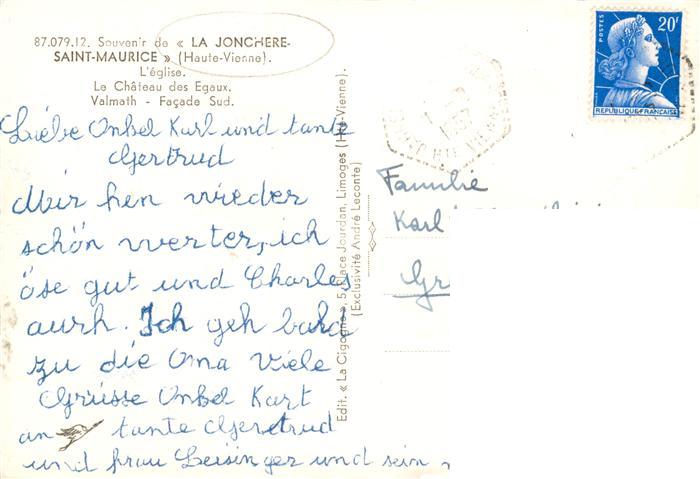 87.079.12. Souvenir de « LA JONCHERE-
SAINT-MAURICE » (Haute-Vienne).
L'église.
Le Château des Egaux.
Valmath - Façade Sud.
Liebe Onkel Karl und tante
Gertrud
Mir hen wieder
schön werter, ich
öse gut und Charles
aurh. Ich geh bald
zu die Oma Viele
Grüsse Onkel Karl
an tante Gertrud
und frau Leisinger und sein
Edit. « La Cigogne », 5, Place Jourdan, Limoges (Hte-Vienne).
(Exclusivité André Leconte)
POSTES
20F
REPUBLIQUE FRANÇAISE
1957
Familie
Karl
Gr